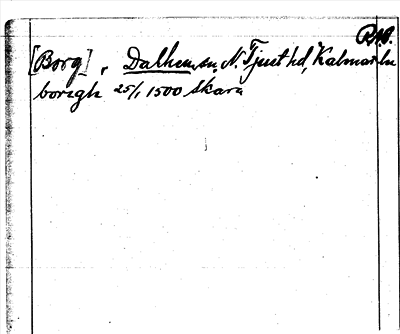 RAP.
[Borg], Dalhem sn, N. Tjust hd, Kalmar ln
boregh 25/1 1500 Skara